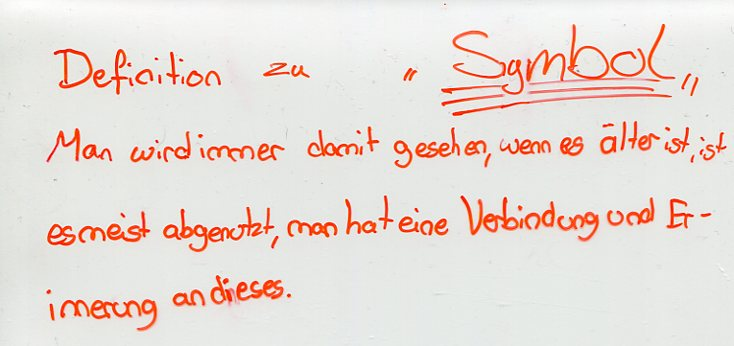 Definition zu " Symbol "
Man wird immer damit gesehen, wenn es älter ist, ist
es meist abgenutzt, man hat eine Verbindung und Er-
innerung an dieses.